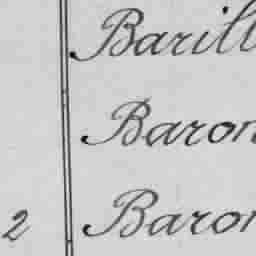 Barill
Baron
2 Baron